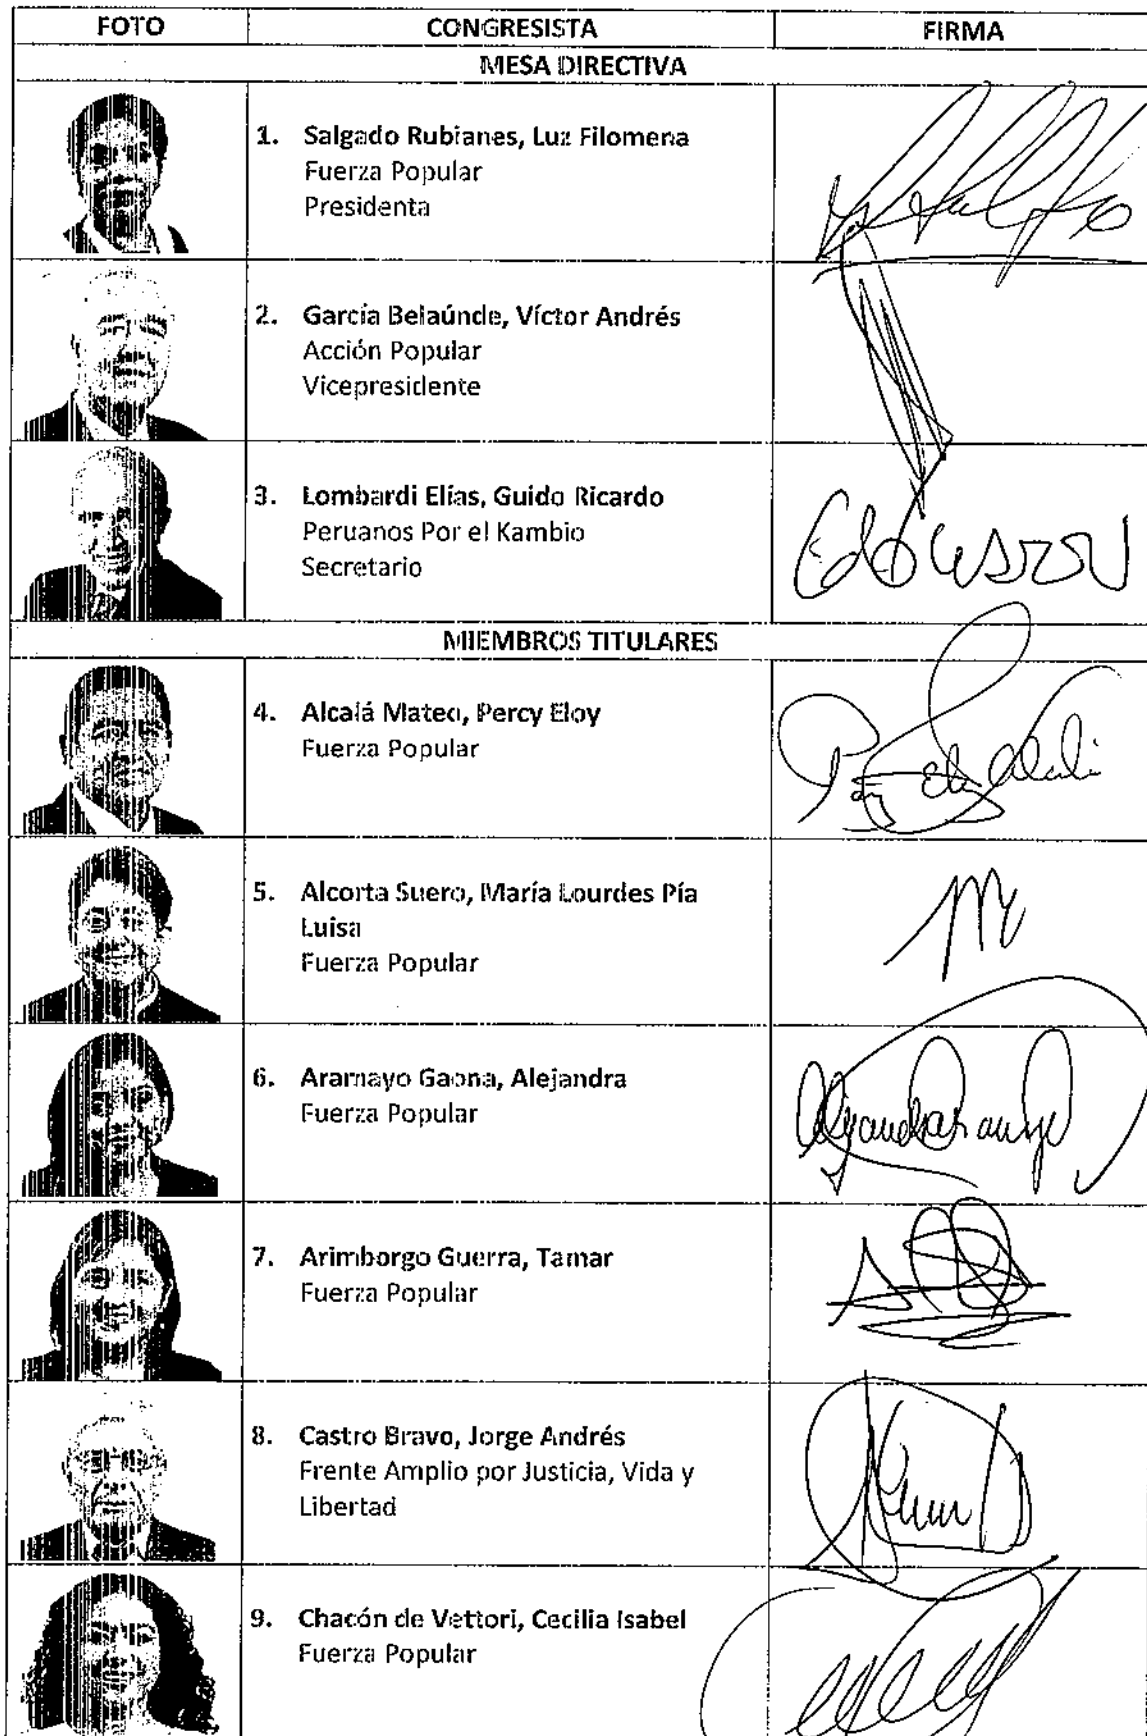 FOTO CONGRESISTA FIRMA
MESA DIRECTIVA
1. Salgado Rubianes, Luz Filomena
Fuerza Popular
Presidenta
2. García Belaúnde, Víctor Andrés
Acción Popular
Vicepresidente
3. Lombardi Elías, Guido Ricardo
Peruanos Por el Kambio
Secretario
MIEMBROS TITULARES
4. Alcalá Mateo, Percy Eloy
Fuerza Popular
5. Alcorta Suero, María Lourdes Pía
Luisa
Fuerza Popular
6. Aramayo Gaona, Alejandra
Fuerza Popular
7. Arimborgo Guerra, Tamar
Fuerza Popular
8. Castro Bravo, Jorge Andrés
Frente Amplio por Justicia, Vida y
Libertad
9. Chacón de Vettori, Cecilia Isabel
Fuerza Popular